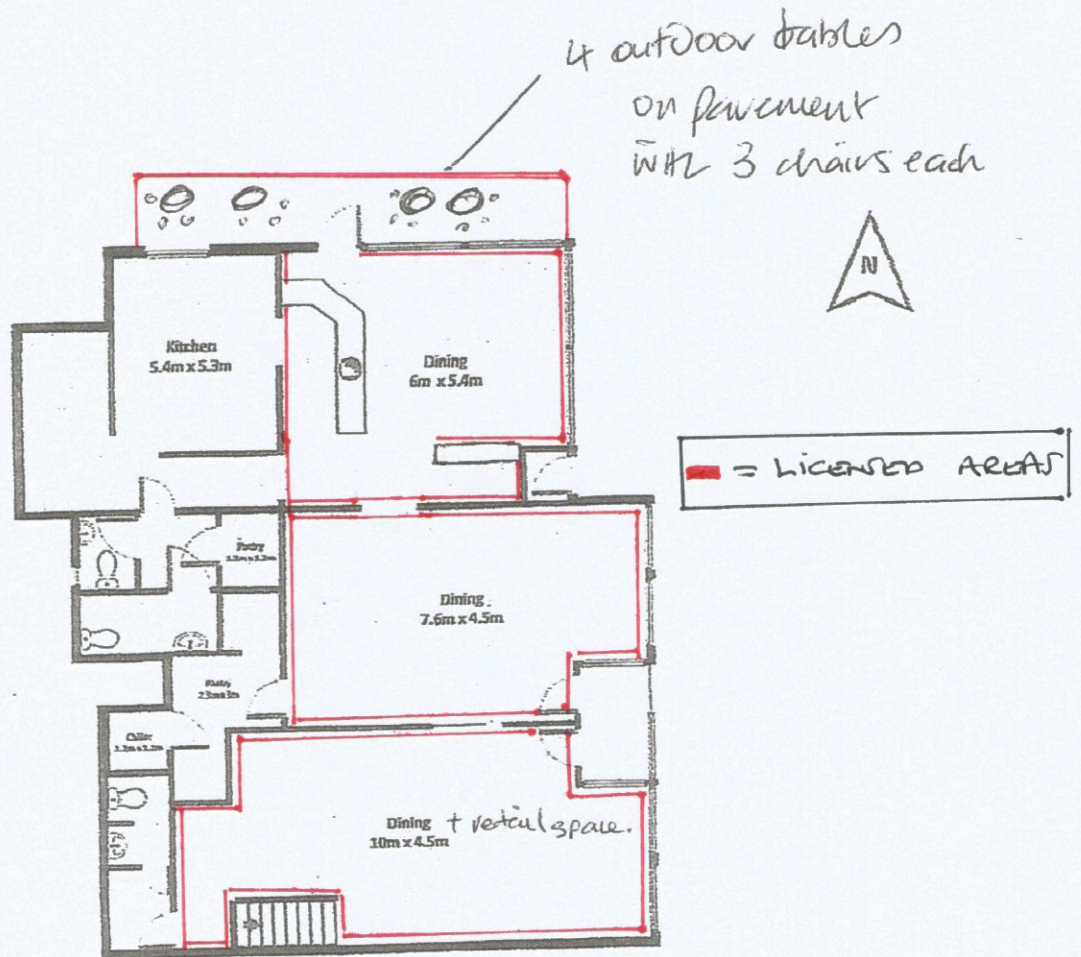 4 outdoor tables
on pavement
with 3 chairs each
N
Kitchen
5.4m x 5.3m
Dining
6m x 5.4m
= LICENSED AREAS
Dining
7.6m x 4.5m
Dining + retail space.
10m x 4.5m